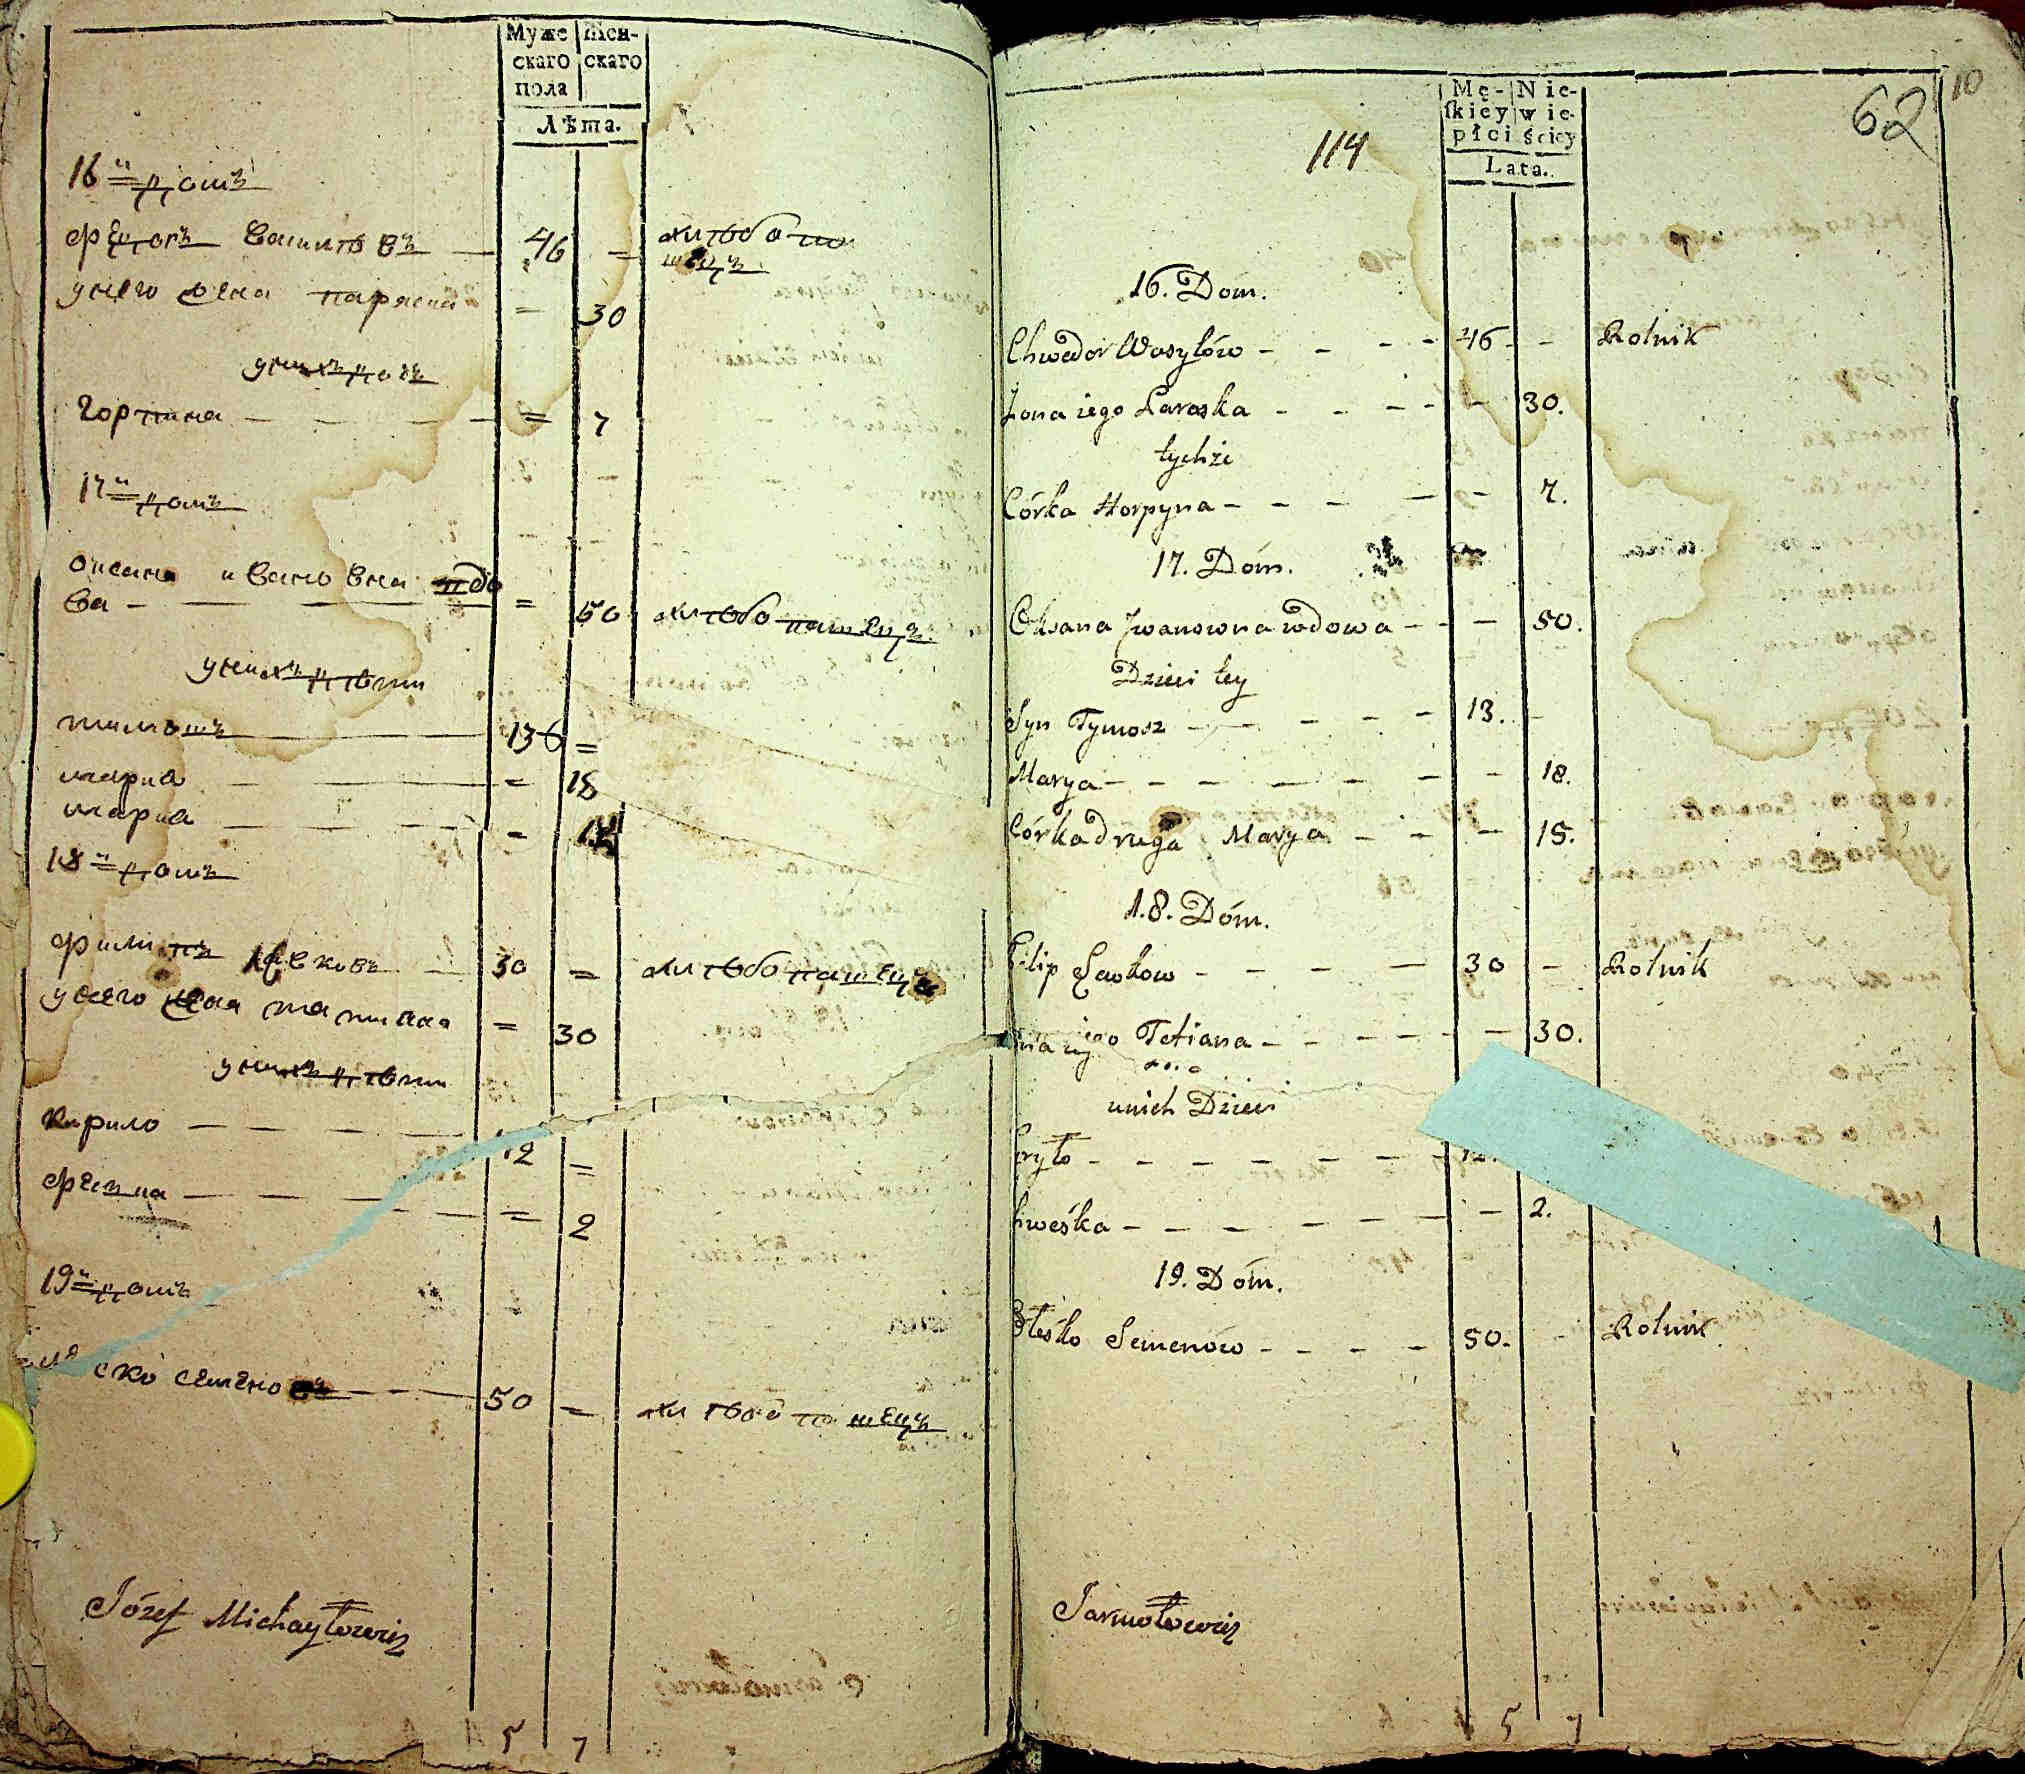 Муже скаго пола
Женскаго
Лѣта.
16й домъ
Федоръ Василѣвъ — 46 = хлѣбопашецъ
унего жена параска = 30
унихъ дочь
Горпина — — — = 7
17й домъ
Оксана Ивановна вдо
ва — — — = 50 хлѣбопашецъ
унихъ дѣти
тимошъ — 13 =
мария — = 18
мария — — — =
18й домъ
Филипъ Левковъ — 30 = хлѣбопашецъ
унего жена татиана = 30
унихъ дѣти
Кирило — — — — 12 =
Фезка — — — = 2
19й домъ
ско Семеновъ — — — 50 = хлѣбопашецъ
Józef Michayłowicz
5 7
10
62
114
Mę-skiey płci
Nie-wie-ściey
Lata.
16. Dom.
Chwedor Wasylów - - - - 46 - - Rolnik
Żona iego Paraska - - - - - 30.
tychże
Córka Horpyna - - - - - 7.
17. Dóm.
Oksana Iwanowna wdowa - - - 50.
Dzieci tey
Syn Tymosz - - - - - 13. -
Marya - - - - - - - - 18.
Córka druga Marya - - - 15.
18. Dóm.
Filip Lewkow - - - - 30 - Rolnik
iego Tetiana - - - - - 30.
unich Dzieci
Kiryło - - - - - - - 12.
Chweśka - - - - - - - - 2.
19. Dóm.
Oleśko Semenów - - - - 50. - Rolnik
Jarmołowicz
5 7